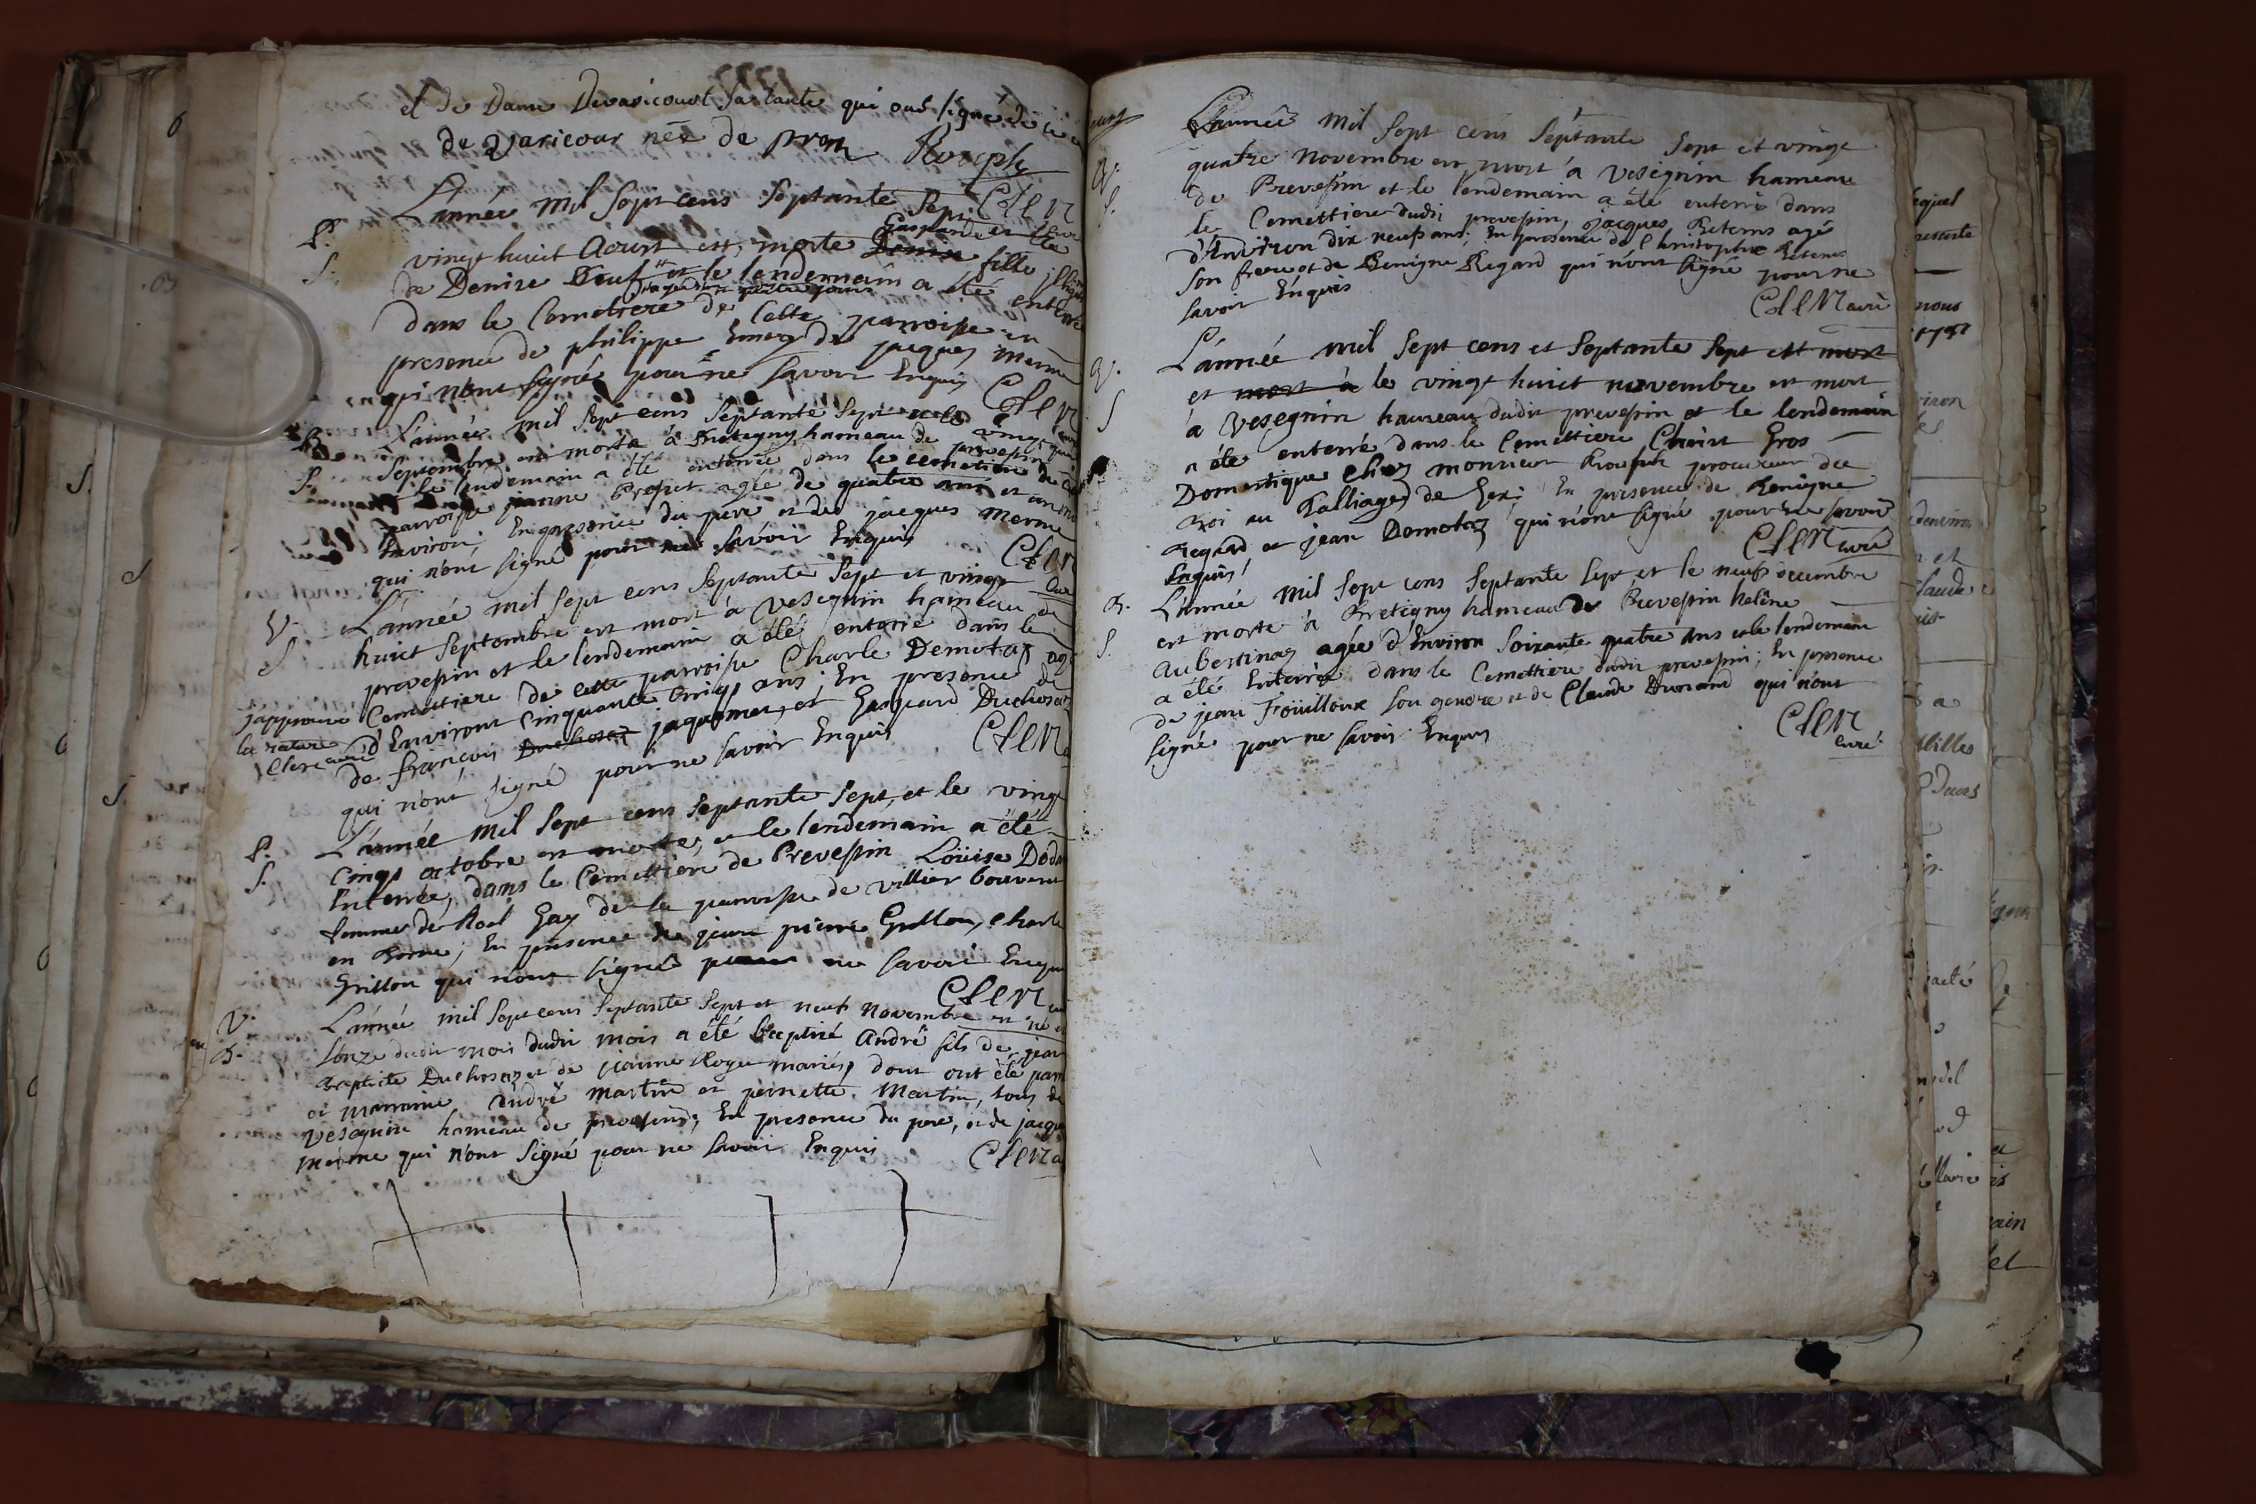 et de Dame Devaricourt sa tante qui ont signé de ce
de Varicour née de prez Rouph
L'année mil sept cens septante sept Clerc curé
P. vingt huict Aoust est morte Denise Gasparde fille
S. de Denise Douf et le lendemain a été enterrée
dans le Cemetiere de Cette parroisse en
presence de philippe Emery de jacques Merme
qui n'ont signé pour ne savoir Enquis Clerc
B. L'année mil sept cens septante sept et le vingt
Septembre est morte à Bretegny hameau de prevesin
S. et le lendemain a été enterrée dans le cemetiere de
parroisse jeanne Profit agée de quatre ans et
Environ; En presence du pére et de jacques Merme
qui n'ont signé pour ne savoir Enquis Clerc
curé
V. L'année mil sept cens septante sept et vingt
S huict Septembre est mort à Vesegnin hameau de
prevesin et le lendemain a été enterré dans le
Cemettiere de Cette parroisse Charle Demotaz agé
japprouve la rature Clerc curé
d'Environt Cinquante Cinq ans; En presence de
de françois Duchosaz jaquemet, et Gaspard Duchosaz
qui n'ont signé pour ne savoir Enquis Clerc
P. L'année mil sept cens septante sept, et le vingt
S. Cinq octobre est morte, et le lendemain a été
Enterrée, dans le Cemettiere de Prevesin Loüise
femme de Noel Gay de la parroisse de villier bouveret
en ; En presence de jean pierre Grillon, Charle
Grillon qui n'ont signé pour ne savoir Enquis
Clerc curé
V. L'année mil sept cens septante sept et neuf Novembre est né et
B. l'onze dudit mois dudit mois a été baptisé André fils de jean
Baptiste Duchosaz et de jeanne Roger mariés dont ont été parrain
et marraine André Martin et pernette Martin, tous de
Vesegnin hameau de prevesin; En presence du pere, et de jacques
Merme qui n'ont signé pour ne savoir Enquis Clerc
L'année mil sept cens septante sept et vingt
V. quatre novembre est mort à Vesegnin hameau
S. de Prevesin et le lendemain a été enterré dans
le Cemettiere dudit prevesin, jacques Beterns agé
d'Environ dix neuf ans; En presence de Christophe Beterns
son frere et de Benigne Regard qui n'ont signé pour ne
savoir Enquis
Clerc curé
V. L'année mil sept cens et septante sept est mort
et mort à le vingt huict novembre est mort
S à Vesegnin hameau dudit prevesin et le lendemain
a été enterré dans le Cemettiere Claire Gros
Domestique Chez monsieur Rouph procureur du
Roi au Balliage de Gex; En presence de Benigne
Regard et jean Demotaz qui n'ont signé pour ne savoir
Enquis!
Clerc curé
B. L'année mil sept cens septante sept et le neuf decembre
est morte à Bretigny hameau de Prevesin helêne
S. Aubertinaz agée d'Environ soixante quatre ans et le lendemain
a été Enterrée dans le Cemettiere dudit prevesin; En presence
de jean Foüilloux son gendre et de Claude Durand qui n'ont
signé pour ne savoir Enquis
Clerc
curé